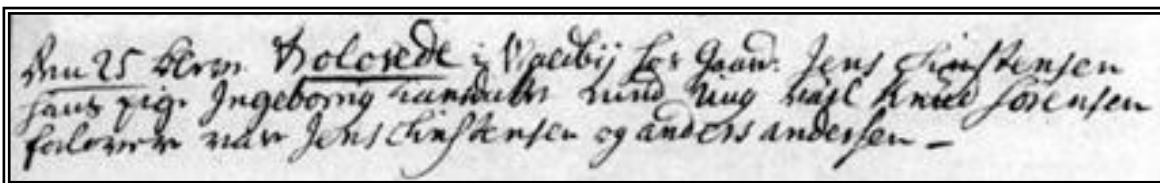 Den 25 blev Trolovede i Valbij hos Gaard: Jens Christensen
hans pige Ingeborrig med ung karl Knud Sørensen
forlover var Jens Christensen og anders andersen –